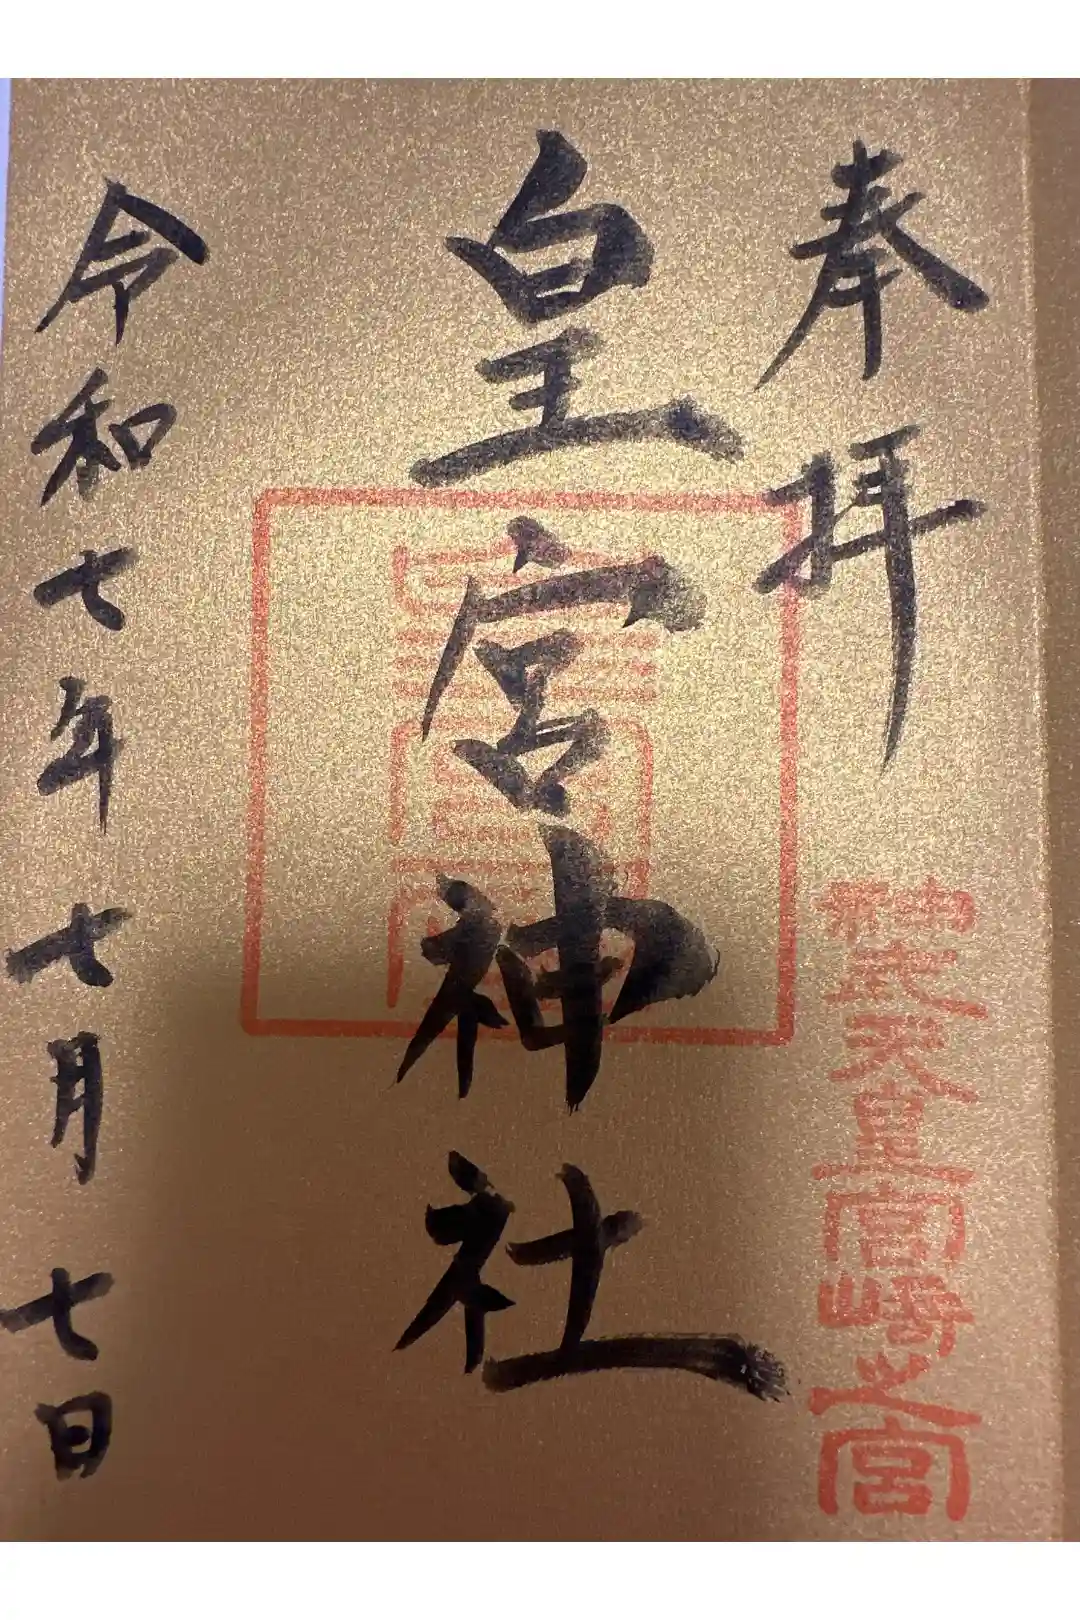 奉拝
神武天皇宮崎之宮
皇宮神社
令和七年七月七日